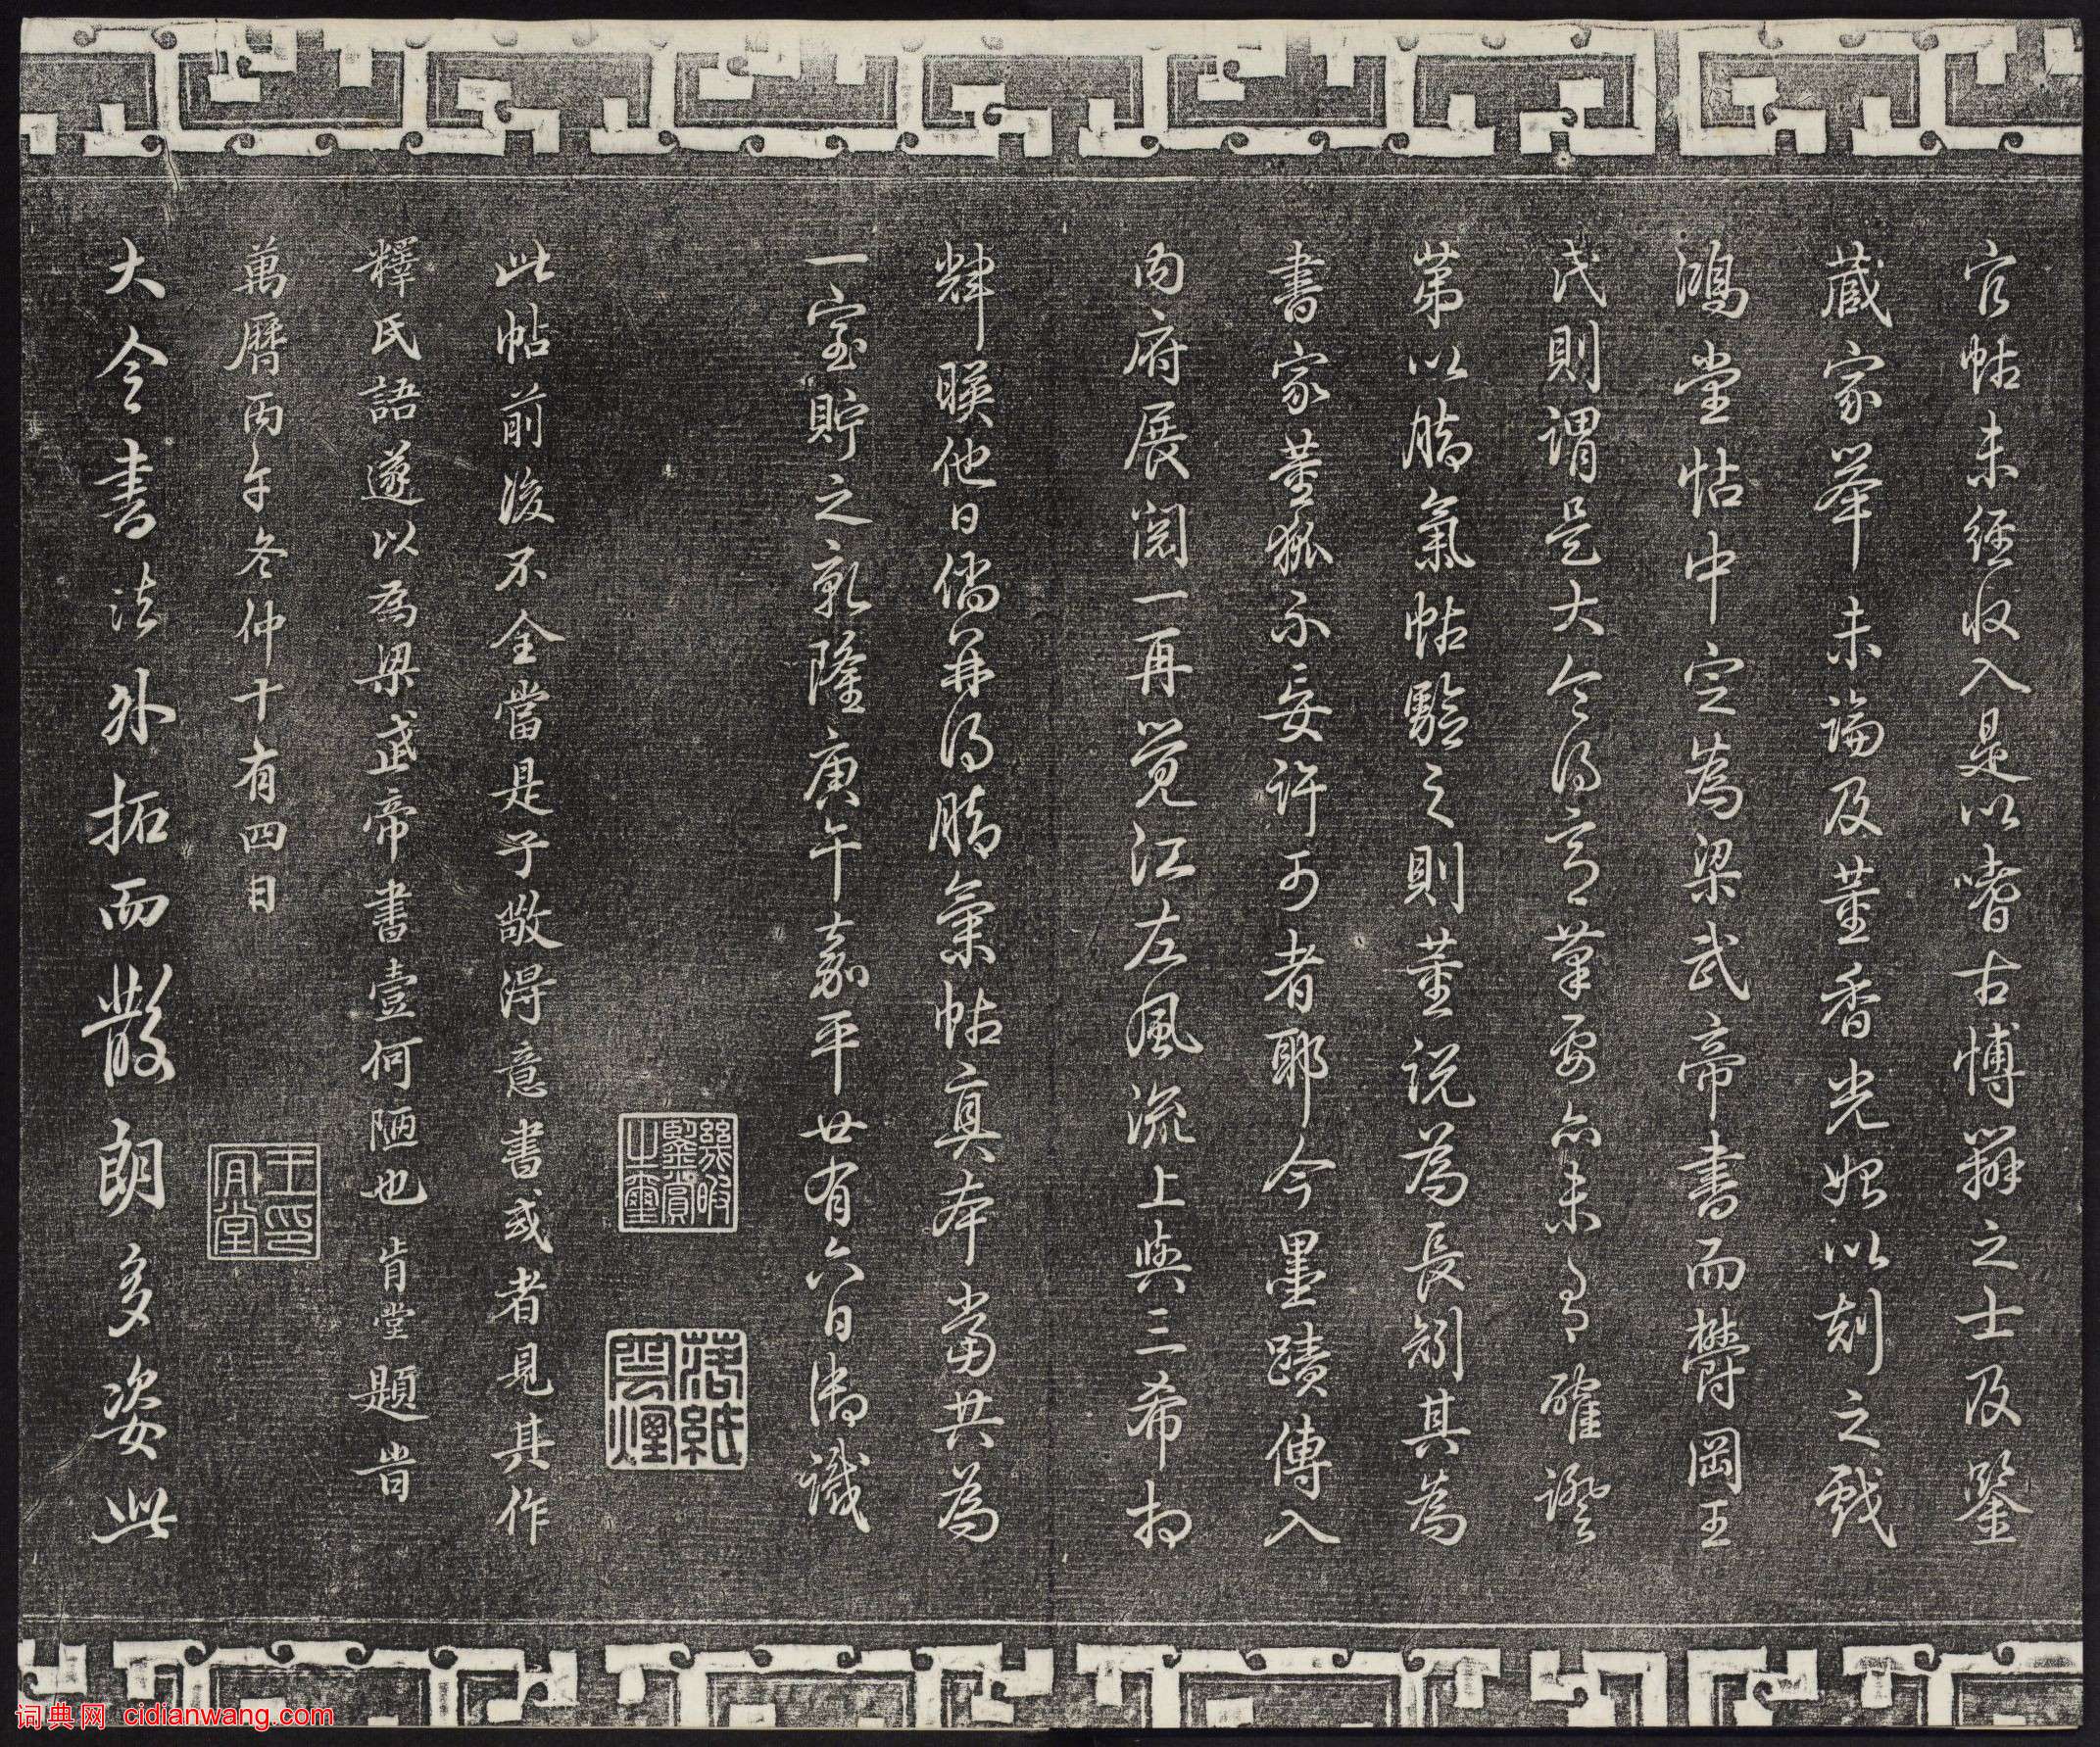 官帖未經收入是以嗜古博辯之士及鑒
藏家舉未論及董香光始以刻之戲
鴻堂帖中定為梁武帝書而欝岡王
氏則謂是大令得意筆要亦未有確證
第以腊氣帖驗之則董說為長別其為
書家董狐不妄許可者耶今墨蹟傳入
內府展閱一再覺江左風流上與三希相
輝暎他日倘并得腊氣帖真本當共為
一室貯之乾隆庚午嘉平廿有六日御識
幾暇鑒賞之璽
落紙雲煙
此帖前後不全當是子敬得意書或者見其作
釋氏語遂以為梁武帝書壹何陋也肯堂題旹
萬曆丙午冬仲十有四日
王肯堂印
大令書法外拓而散朗多姿此
词典网 cidianwang.com